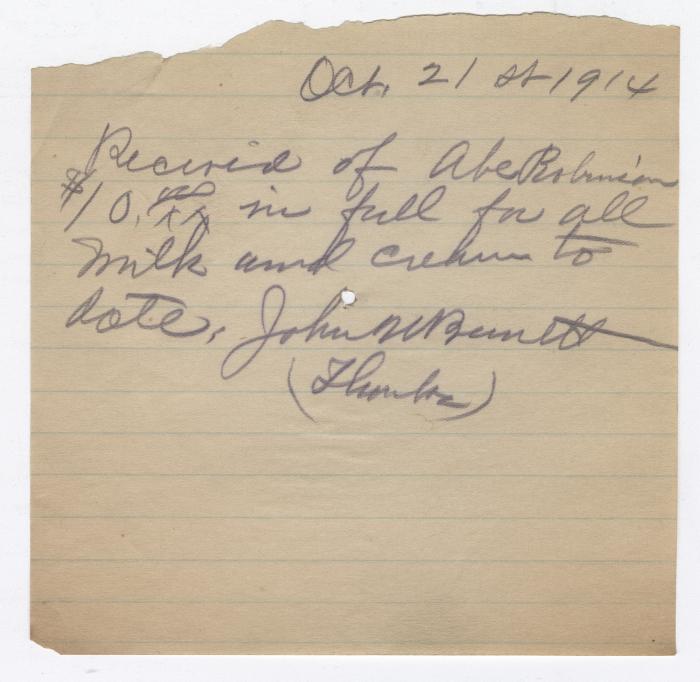 Oct. 21 st 1914
Received of Abe Robinson
$10.00/xx in full for all
milk and cream to
date. John W Burnett
(Thanks)